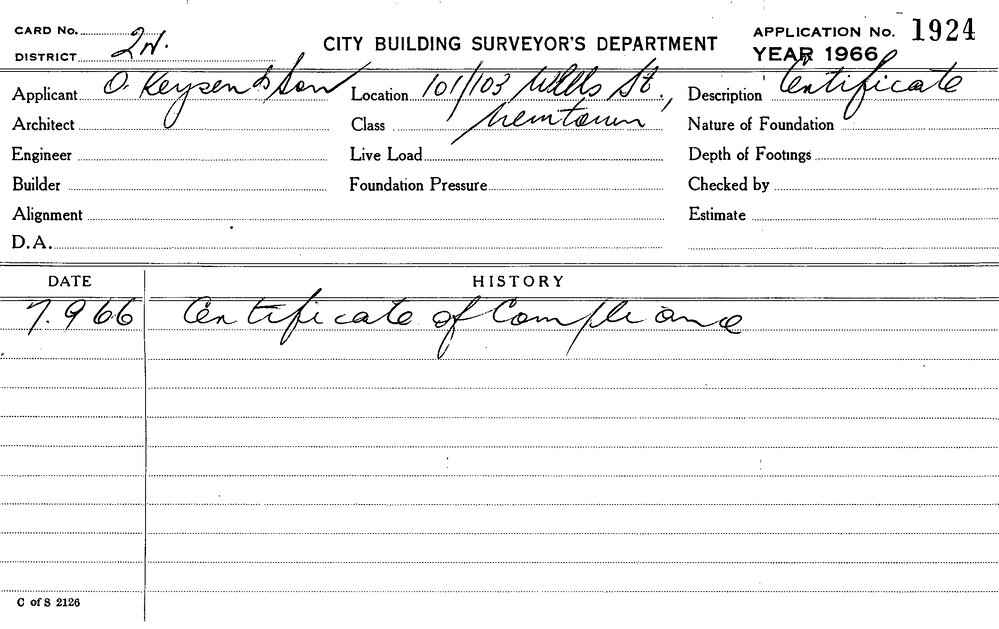 CARD No.
DISTRICT 2N.
CITY BUILDING SURVEYOR'S DEPARTMENT
APPLICATION No. 1924
YEAR 1966
Applicant O. Keysen & Son Location 101/103 Wells St., Description Certificate
Architect Class Newtown Nature of Foundation
Engineer Live Load Depth of Footings
Builder Foundation Pressure Checked by
Alignment Estimate
D.A.
DATE HISTORY
7.9 66 Certificate of Compliance
C of S 2126